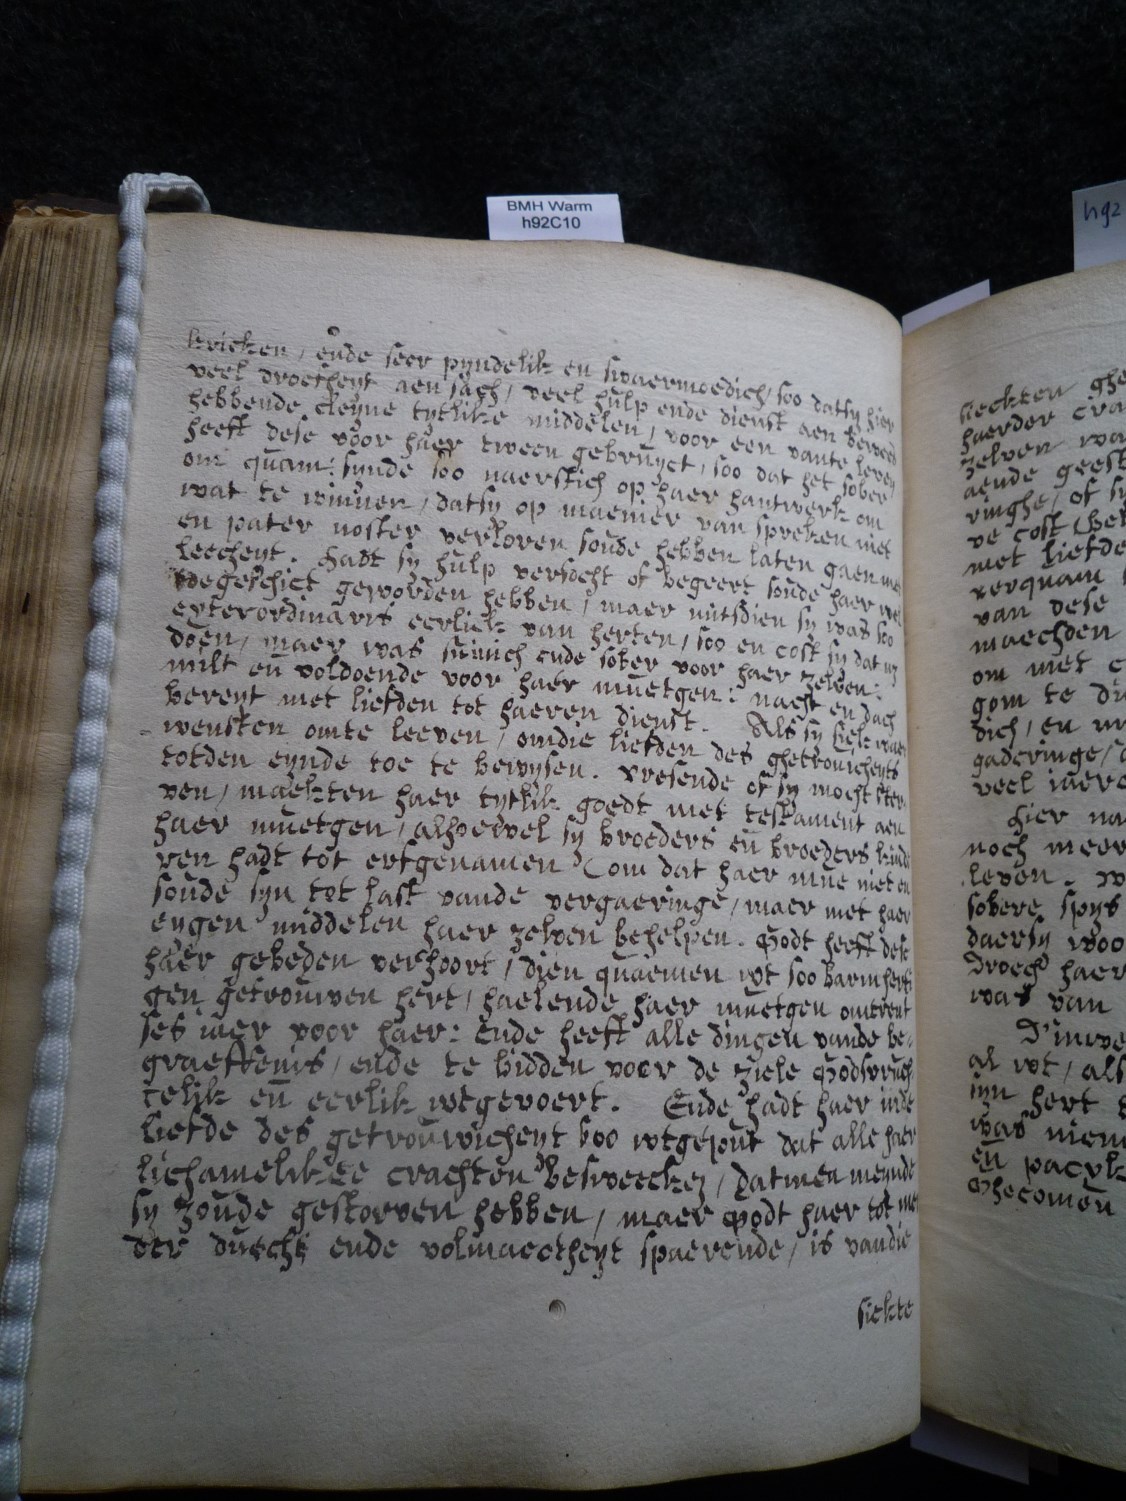 BMH Warm
h92C10
h92
kricken, ende seer pijndelik en swaermoedich, soo datsy hier
veel droefheyt aen sach, veel hulp ende dienst aen bewees
hebbende cleyne tytlike middelen, voor een vante leven
heeft dese voor haer tween gebruyct, soo dat het sober
om quam: sijnde soo naerstich op haer hantwerk om
wat te winnen, datsy op maenier van spreken niet
en pater noster verloren soude hebben laten gaen met
leecheyt. Hadt sy hulp versocht of begeert soude haer wel
toegeschict geworden hebben, maer mitsdien sy was soo
exterordinaris eerlick van herten, soo en cost sy dat ny
doen, maer was suinich ende sober voor haer zelven:
milt en voldoende voor haer muetgen: nacht en dach
bereyt met liefden tot haeren dienst. Als sy siek was
wensten omte leeven, omdie liefden des ghetrouicheyts
totden eynde toe te bewysen. vresende of sy moest ster
ven, maekten haer tytlik goedt met testament aen
haer muetgen, alhoewel sy broeders en broeders kinde
ren hadt tot erfgenamen (om dat haer mue niet en
soude syn tot last vande vergaeringe, maer met haer
eygen middelen haer zelven behelpen. Godt heeft dese
haer gebeden verhoort, dien quaemen wt soo barmherti
gen getrouwen hert, haelende haer muetgen omtrent
ses iaer voor haer: Ende heeft alle dingen vande be
graeffenis, ende te bidden voor de ziele Godsvruch
telik en eerlik wtgevoert. Ende hadt haer inde
liefde des getrouwicheyt soo wtgeput dat alle haer
lichamelikee crachten besweecken, datmen meynde
sy zoude gestorven hebben, maer Godt haer tot me
der duecht ende volmaectheyt spaerende, is vandie
siekte
sieckten
haerder
zelven
aende
ringhe, of
met liefde
verquam
van dese
maechden
om met
gom te
dich, en
gaderinge,
veel iaere
hier na
noch meer
leven.
sobere spys
daersy
Droech haer
was van
al wt, als
iyn hert
was niem
en
Ghecomen